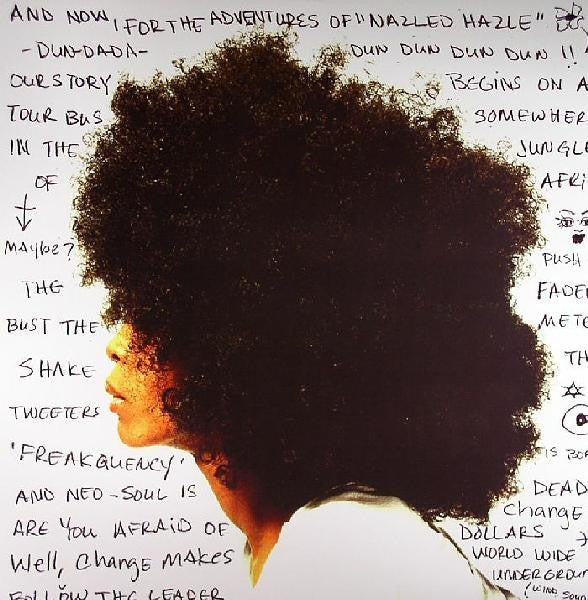 AND NOW, FOR THE ADVENTURES OF "NAZLED HAZLE"
-DUN-DADA- DUN DUN DUN DUN !!
OUR STORY BEGINS ON A
TOUR BUS SOMEWHER
IN THE JUNGLE
OF AFRI
MAYBE?
PUSH
THE FADE
BUST THE METE
SHAKE TH
TWEETERS
'FREAKQUENCY' IS BO
AND NEO-SOUL IS DEAD
ARE YOU AFRAID OF Change
Well, Change MAKES DOLLARS
WORLD WIDE
FOLLOW THE LEADER UNDERGROUN
(WIND SOUN